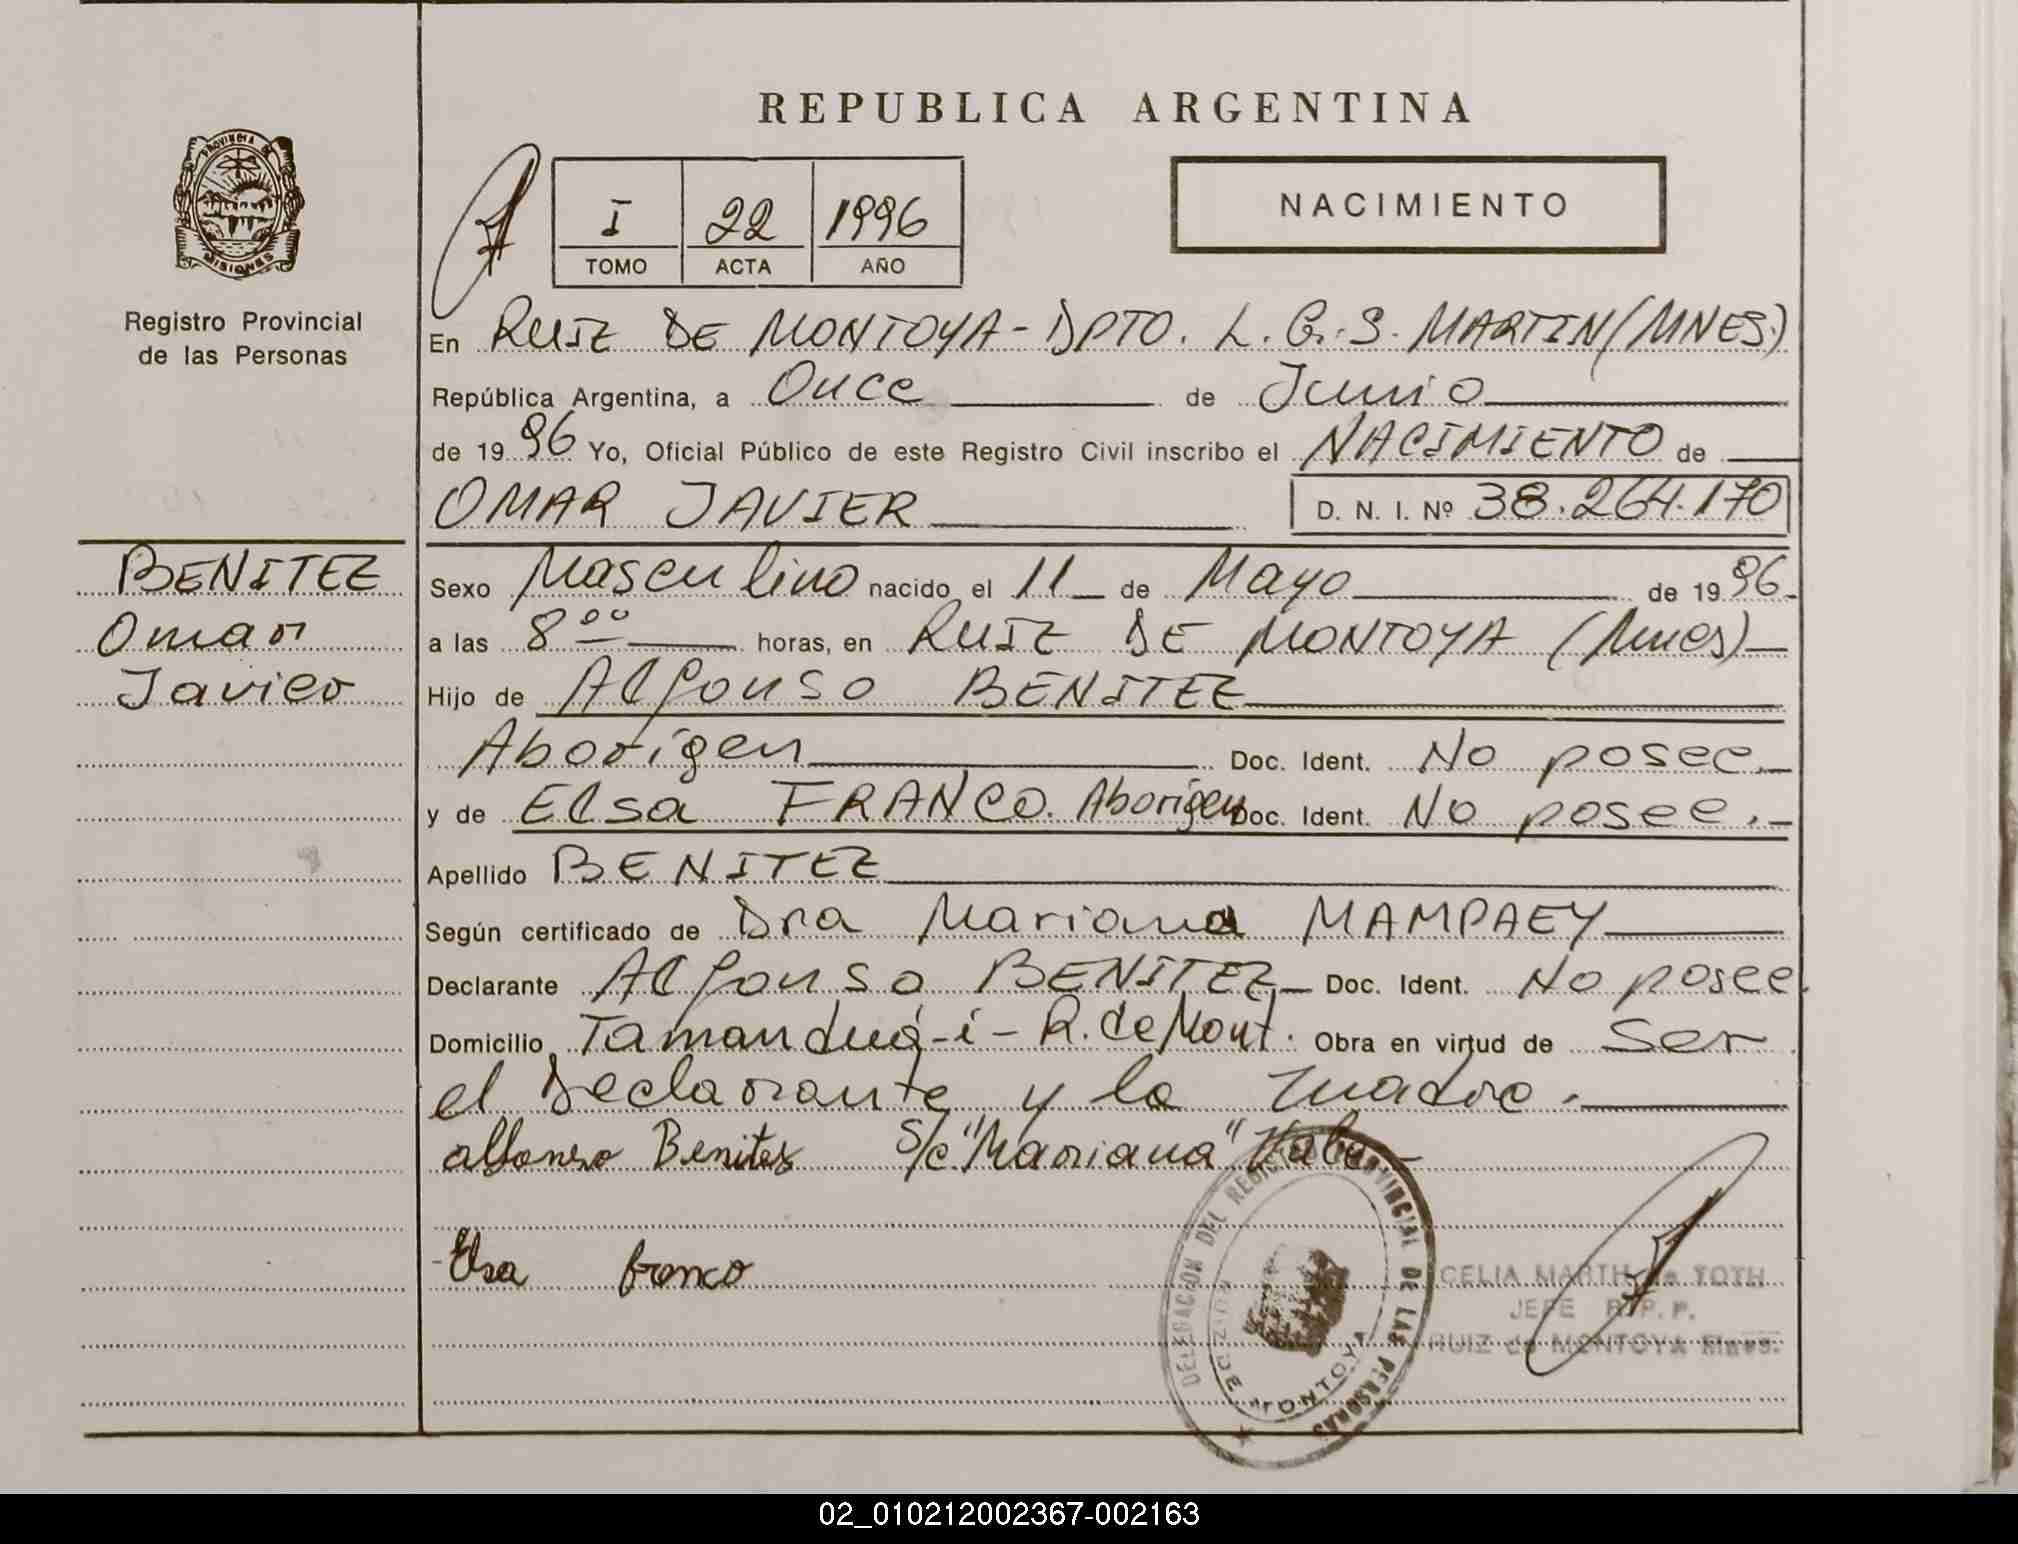 REPUBLICA ARGENTINA
PROVINCIA DE
MISIONES
Registro Provincial
de las Personas
I 22 1996
TOMO ACTA AÑO
NACIMIENTO
En RUIZ DE MONTOYA - DPTO. L. G. S. MARTIN (MNES)
República Argentina, a Once de Junio
de 1996 Yo, Oficial Público de este Registro Civil inscribo el NACIMIENTO de
OMAR JAVIER D. N. I. Nº 38.264.170
BENITEZ
Omar
Javier
Sexo Masculino nacido el 11 de Mayo de 1996
a las 8 00 horas, en RUIZ DE MONTOYA (Mnes)
Hijo de Alfonso BENITEZ
Aborigen Doc. Ident. No posee.
y de Elsa FRANCO. Aborigen Doc. Ident. No posee.
Apellido BENITEZ
Según certificado de Dra Mariana MAMPAEY
Declarante Alfonso BENITEZ Doc. Ident. No posee.
Domicilio Tamanduá-i - R. de Mont. Obra en virtud de ser
el Declarante y la madre.
alfonso Benites S/c "Mariana" Vale
Elsa franco
DELEGACION DEL REGISTRO PROVINCIAL DE LAS PERSONAS
RUIZ DE MONTOYA
CELIA MARTH de TOTH
JEFE R. P. P.
RUIZ de MONTOYA Mnes.
02_010212002367-002163